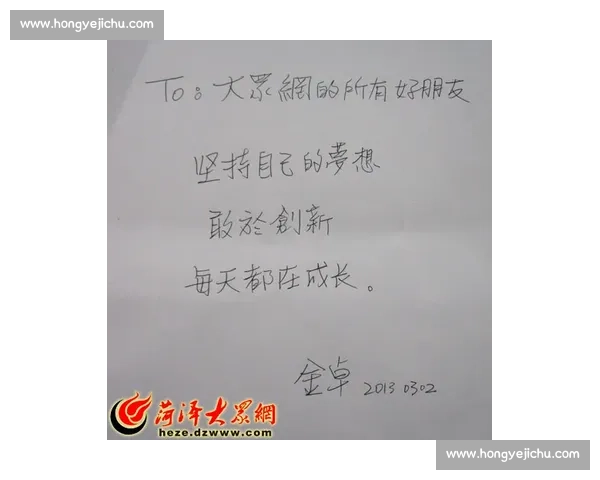 www.hongyejichu.com
To: 大眾網的所有好朋友
坚持自己的夢想
敢於創新
每天都在成长。
金卓 2013 0302
菏泽大眾網
heze.dzwww.com
www.hongyejichu.com